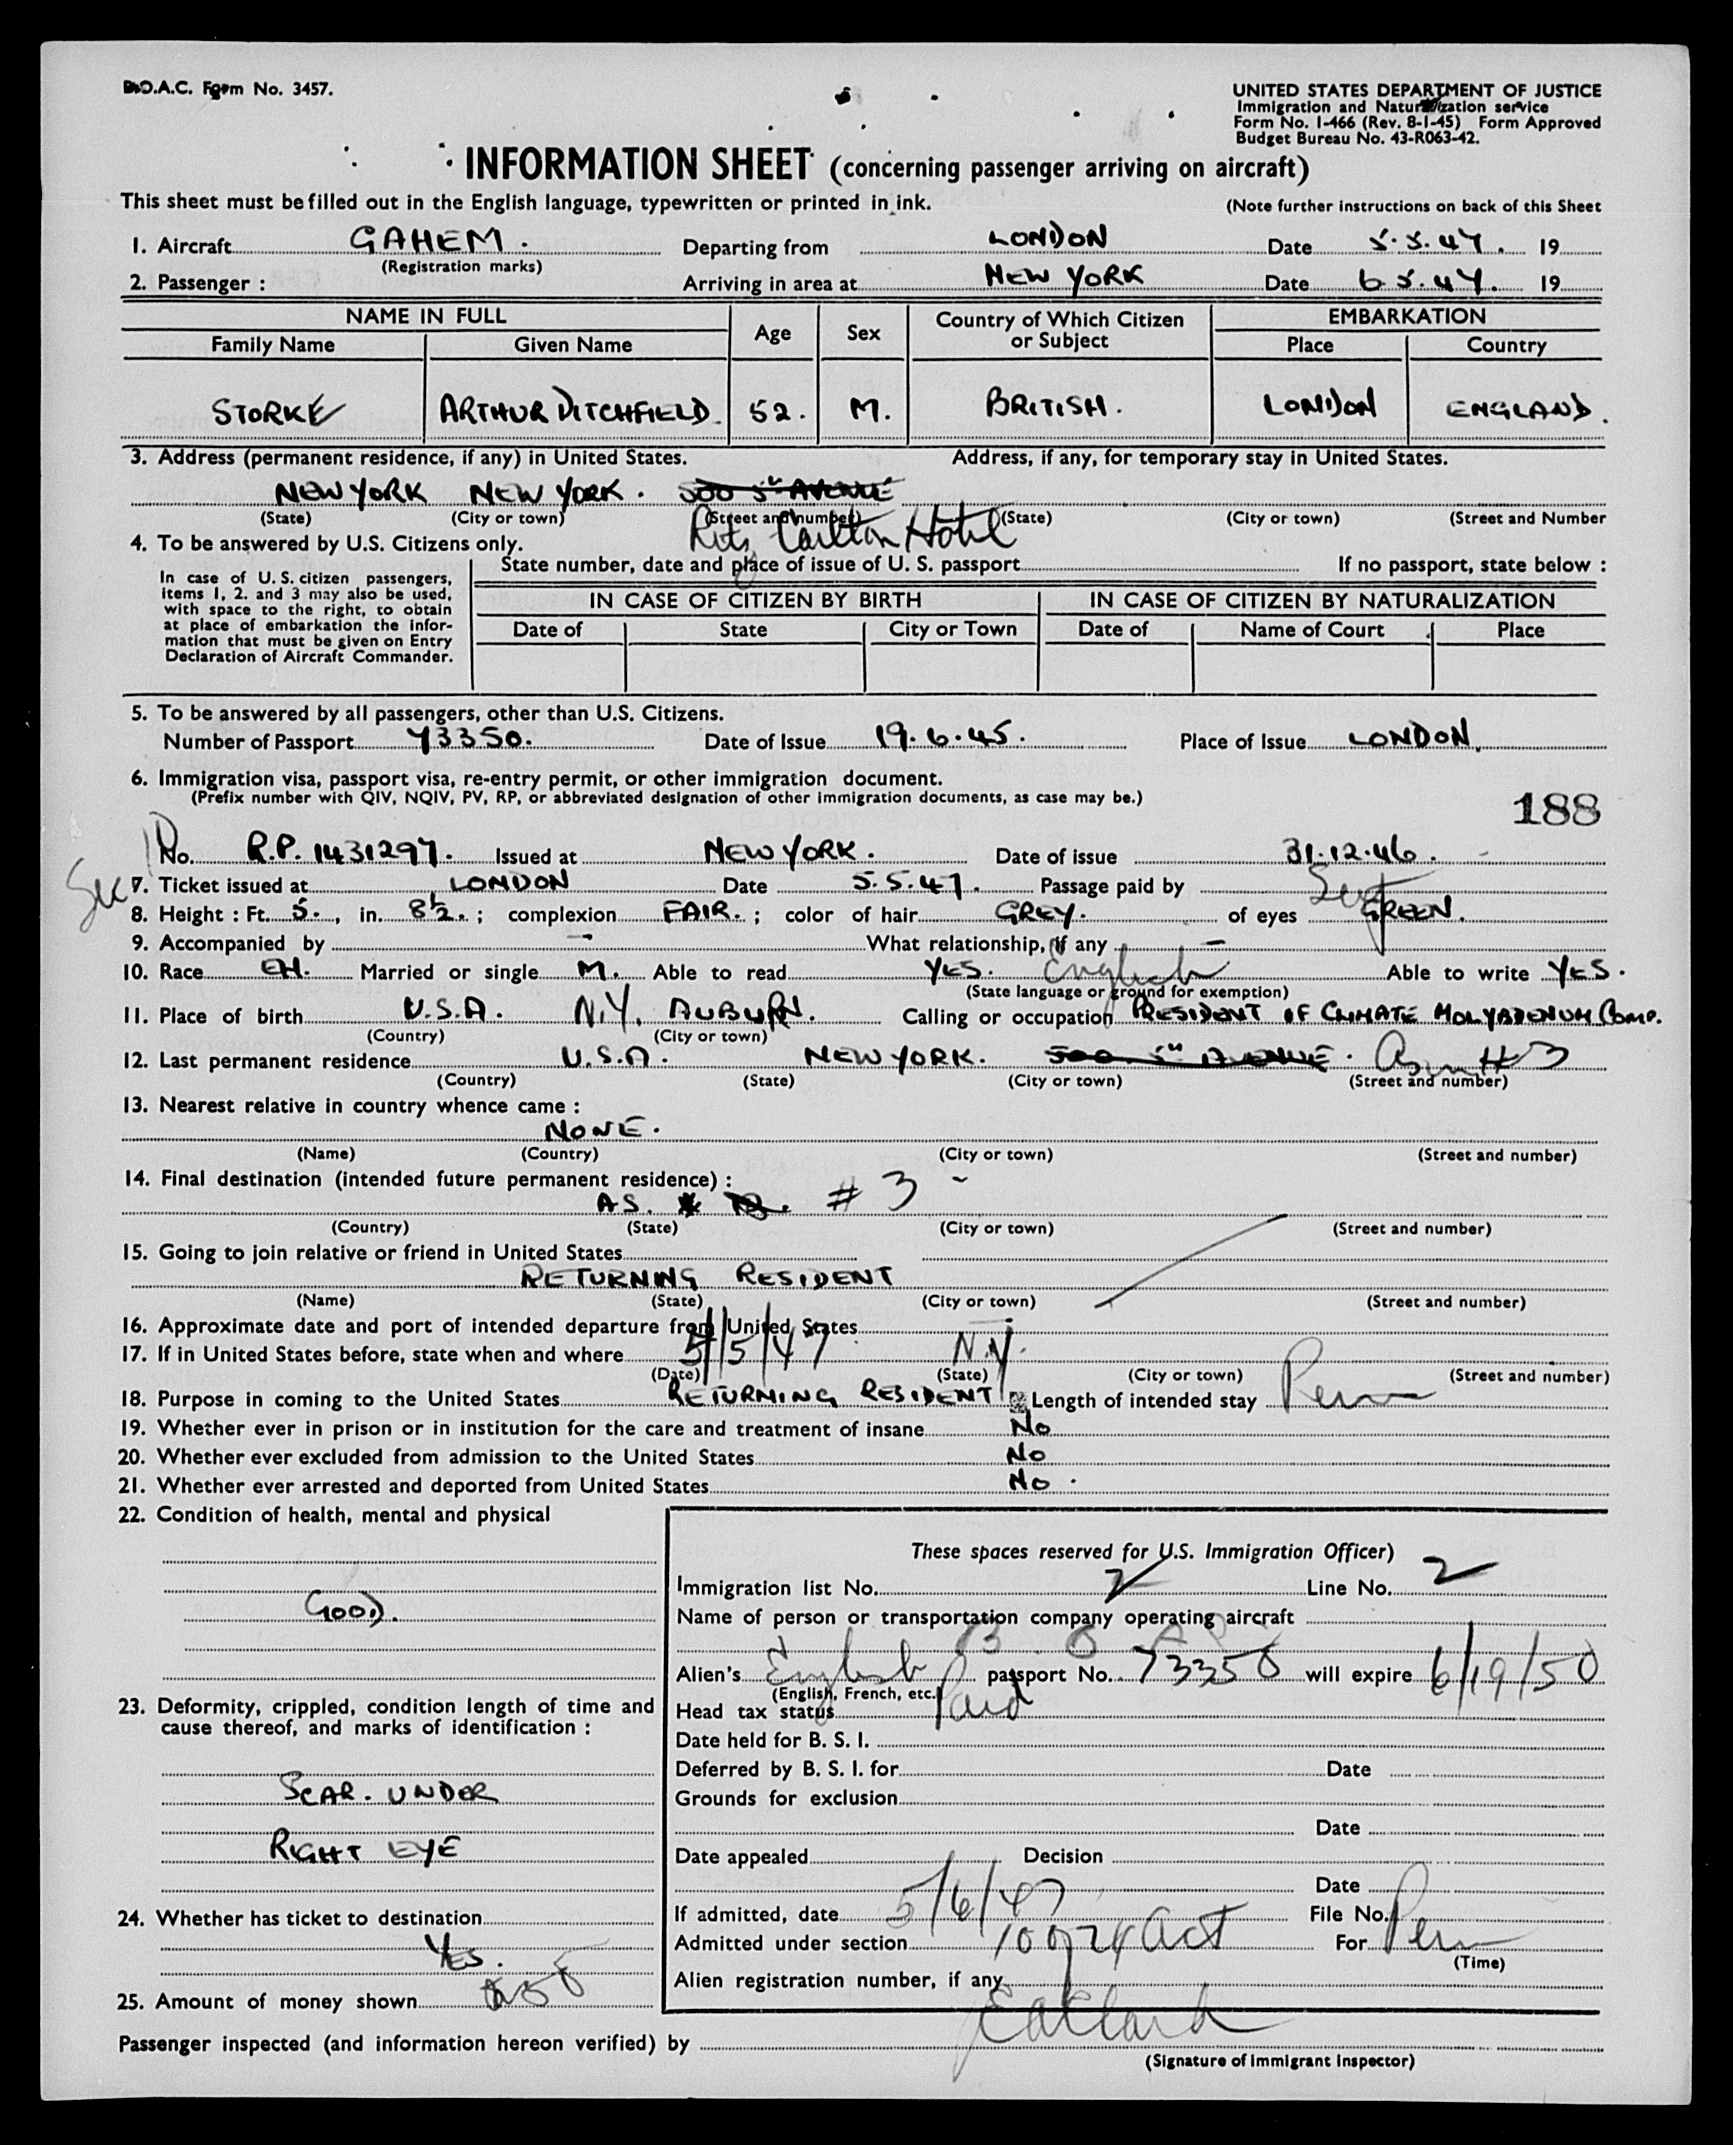 B.O.A.C. Form No. 3457.
UNITED STATES DEPARTMENT OF JUSTICE
Immigration and Naturalization service
Form No. I-466 (Rev. 8-1-45) Form Approved
Budget Bureau No. 43-R063-42.
INFORMATION SHEET (concerning passenger arriving on aircraft)
This sheet must be filled out in the English language, typewritten or printed in ink. (Note further instructions on back of this Sheet
1. Aircraft GAHEM. Departing from LONDON Date 5.5.47. 19
(Registration marks)
2. Passenger : Arriving in area at NEW YORK Date 6.5.47. 19
NAME IN FULL Age Sex Country of Which Citizen or Subject EMBARKATION
Family Name Given Name Place Country
STORKE ARTHUR DITCHFIELD 52. M. BRITISH. LONDON ENGLAND.
3. Address (permanent residence, if any) in United States. Address, if any, for temporary stay in United States.
NEW YORK NEW YORK. 500 5th AVENUE
(State) (City or town) (Street and number) (State) (City or town) (Street and Number
Ritz Carlton Hotel
4. To be answered by U.S. Citizens only.
State number, date and place of issue of U. S. passport If no passport, state below :
In case of U. S. citizen passengers,
items 1, 2. and 3 may also be used,
with space to the right, to obtain
at place of embarkation the infor-
mation that must be given on Entry
Declaration of Aircraft Commander.
IN CASE OF CITIZEN BY BIRTH IN CASE OF CITIZEN BY NATURALIZATION
Date of State City or Town Date of Name of Court Place
5. To be answered by all passengers, other than U.S. Citizens.
Number of Passport 73350. Date of Issue 19.6.45. Place of Issue LONDON.
6. Immigration visa, passport visa, re-entry permit, or other immigration document.
(Prefix number with QIV, NQIV, PV, RP, or abbreviated designation of other immigration documents, as case may be.)
188
No. R.P. 1431297. Issued at NEW YORK. Date of issue 31.12.46.
7. Ticket issued at LONDON Date 5.5.47. Passage paid by Self
8. Height : Ft. 5., in. 8½.; complexion FAIR.; color of hair GREY. of eyes GREEN.
9. Accompanied by - What relationship, if any -
10. Race EH. Married or single M. Able to read YES. English Able to write YES.
(State language or ground for exemption)
11. Place of birth U.S.A. N.Y. AUBURN. Calling or occupation PRESIDENT OF CLIMATE MOLYBDENUM COMP.
(Country) (City or town)
12. Last permanent residence U.S.A. NEW YORK. 500 5th AVENUE. As in #3
(Country) (State) (City or town) (Street and number)
13. Nearest relative in country whence came :
NONE.
(Name) (Country) (City or town) (Street and number)
14. Final destination (intended future permanent residence) :
AS. # 3
(Country) (State) (City or town) (Street and number)
15. Going to join relative or friend in United States
RETURNING RESIDENT
(Name) (State) (City or town) (Street and number)
16. Approximate date and port of intended departure from United States
17. If in United States before, state when and where 5/5/47 N.Y.
(Date) (State) (City or town) (Street and number)
18. Purpose in coming to the United States RETURNING RESIDENT Length of intended stay Perm
19. Whether ever in prison or in institution for the care and treatment of insane NO
20. Whether ever excluded from admission to the United States NO
21. Whether ever arrested and deported from United States NO.
22. Condition of health, mental and physical
GOOD.
23. Deformity, crippled, condition length of time and
cause thereof, and marks of identification :
SCAR. UNDER
RIGHT EYE
24. Whether has ticket to destination
YES.
25. Amount of money shown
These spaces reserved for U.S. Immigration Officer)
Immigration list No. 2 Line No. 2
Name of person or transportation company operating aircraft
B O A C
Alien's English passport No. 73350 will expire 6/19/50
(English, French, etc.)
Head tax status Paid
Date held for B. S. I.
Deferred by B. S. I. for Date
Grounds for exclusion
Date
Date appealed Decision
Date
If admitted, date 5/6/47 File No.
Admitted under section Act For Perm
(Time)
Alien registration number, if any
Passenger inspected (and information hereon verified) by
(Signature of Immigrant Inspector)